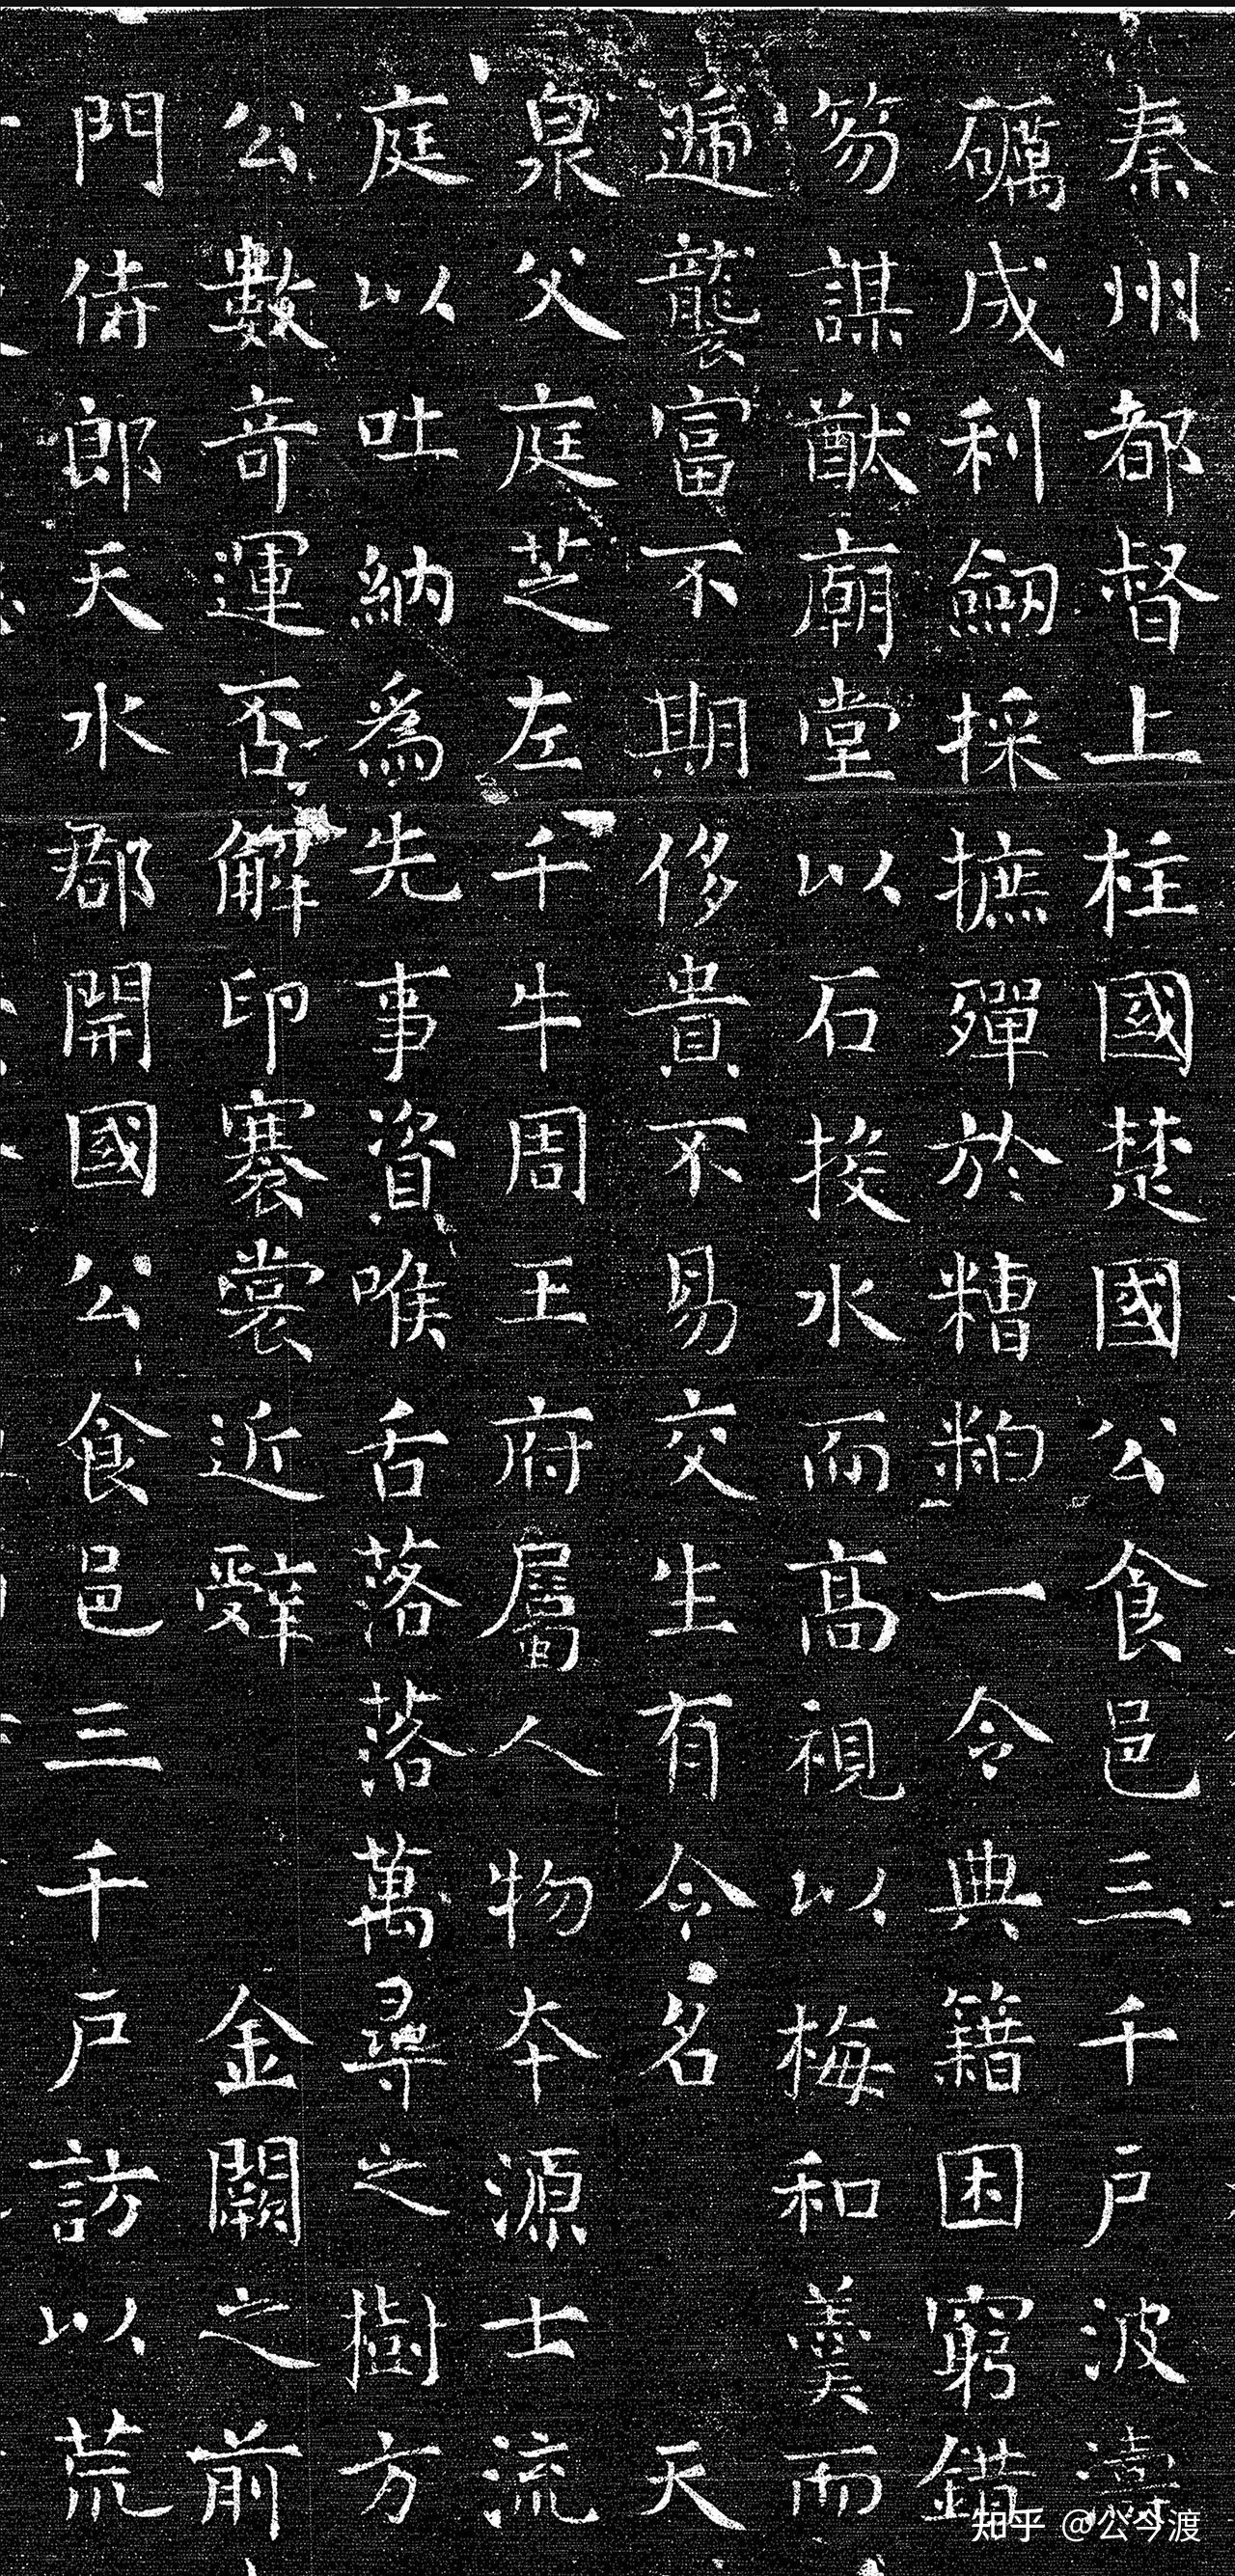 秦州都督上柱國楚國公食邑三千戶波濤
礪成利劒採摭殫於糟粕一令典籍困窮錯
笏謀猷廟堂以石投水而高視以梅和羹而
遞襲富不期侈貴不易交生有令名天
泉父庭芝左千牛周王府屬人物本源士流
庭以吐納爲先事資喉舌落落萬尋之樹方
公數奇運否解印褰裳近辭金闕之前
門侍郎天水郡開國公食邑三千戶訪以荒
知乎 @公今渡